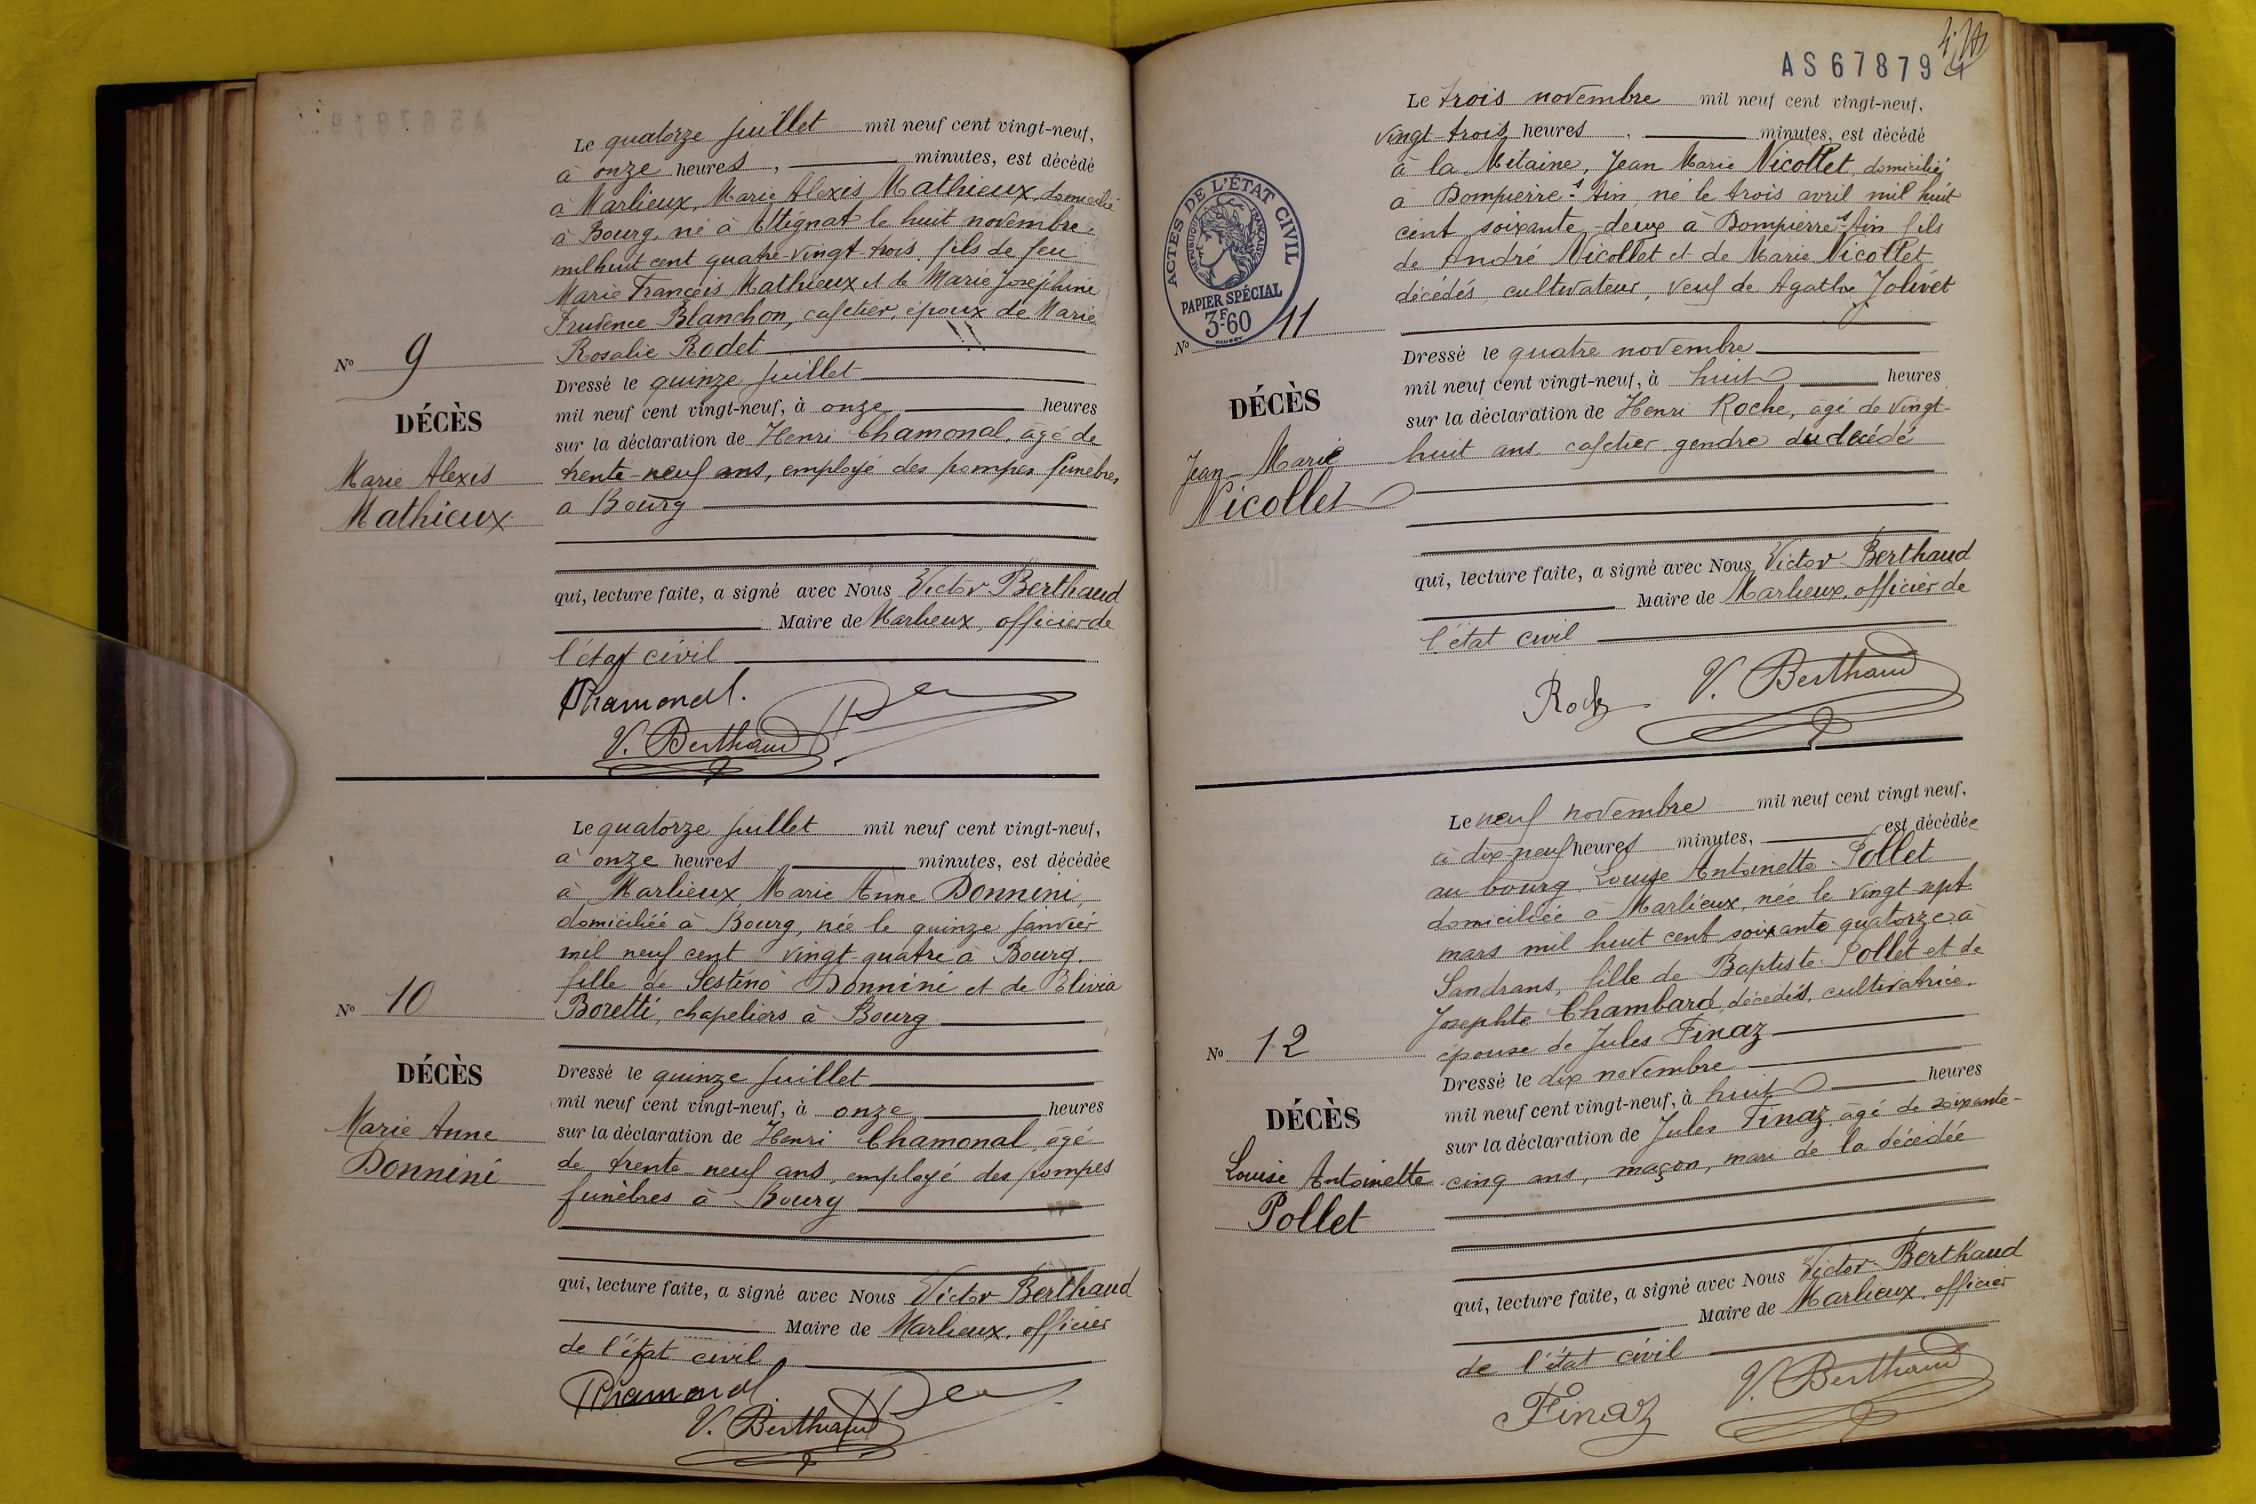 Le quatorze juillet mil neuf cent vingt-neuf,
à onze heures, minutes, est décédé
à Marlieux, Marie Alexis Mathieux, domicilié
à Bourg, né à Attignat le huit novembre
mil huit cent quatre-vingt-trois, fils de feu
Marie François Mathieux et de Marie Joséphine
Prudence Blanchon, cafetier, époux de Marie
Rosalie Rodet
Nº 9
DÉCÈS
Marie Alexis
Mathieux
Dressé le quinze juillet
mil neuf cent vingt-neuf, à onze heures
sur la déclaration de Henri Chamonal, âgé de
trente-neuf ans, employé des pompes funèbres
à Bourg
qui, lecture faite, a signé avec Nous Victor Berthaud
Maire de Marlieux, officier de
l'état civil
Chamonal.
V. Berthaud
Le quatorze juillet mil neuf cent vingt-neuf,
à onze heures minutes, est décédée
à Marlieux Marie Anne Donnini,
domiciliée à Bourg, née le quinze janvier
mil neuf cent vingt-quatre à Bourg.
fille de Sestino Donnini et de Olivia
Boretti, chapeliers à Bourg
Nº 10
DÉCÈS
Marie Anne
Donnini
Dressé le quinze juillet
mil neuf cent vingt-neuf, à onze heures
sur la déclaration de Henri Chamonal, âgé
de trente neuf ans, employé des pompes
funèbres à Bourg
qui, lecture faite, a signé avec Nous Victor Berthaud
Maire de Marlieux, officier
de l'état civil
Chamonal.
V. Berthaud
AS67879
4
Le trois novembre mil neuf cent vingt-neuf,
vingt-trois heures, minutes, est décédé
à la Mitaine, Jean Marie Nicollet, domicilié
à Dompierre-s-Ain, né le trois avril mil huit
cent soixante-deux à Dompierre-s-Ain fils
de André Nicollet et de Marie Nicollet
décédés, cultivateur, veuf de Agathe Jolivet
ACTES DE L'ÉTAT CIVIL
RÉPUBLIQUE FRANÇAISE
PAPIER SPÉCIAL
3F.60
Nº 11
DÉCÈS
Jean-Marie
Nicollet
Dressé le quatre novembre
mil neuf cent vingt-neuf, à huit heures
sur la déclaration de Henri Roche, âgé de vingt-
huit ans cafetier gendre du décédé
qui, lecture faite, a signé avec Nous Victor Berthaud
Maire de Marlieux, officier de
l'état civil
Roche V. Berthaud
Le neuf novembre mil neuf cent vingt neuf,
à dix-neuf heures minutes, est décédée
au bourg Louise Antoinette Pollet
domiciliée à Marlieux, née le vingt-sept
mars mil huit cent soixante quatorze à
Sandrans, fille de Baptiste Pollet et de
Josephte Chambard, décédés, cultivatrice.
épouse de Jules Finaz
Nº 12
DÉCÈS
Louise Antoinette
Pollet
Dressé le dix novembre
mil neuf cent vingt-neuf, à huit heures
sur la déclaration de Jules Finaz, âgé de soixante-
cinq ans, maçon, mari de la décédée
qui, lecture faite, a signé avec Nous Victor Berthaud
Maire de Marlieux, officier
de l'état civil
Finaz V. Berthaud